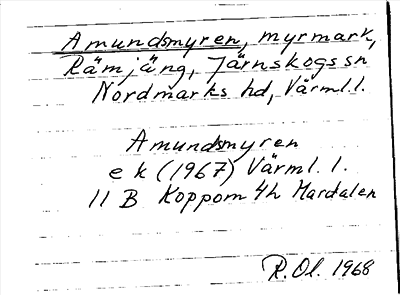 Amundsmyren, myrmark,
Rämjäng, Järnskogs sn
Nordmarks hd, Värml.l.
Amundsmyren
e k (1967) Värml. l.
11 B Koppom 4h Mardalen
R.Ol. 1968